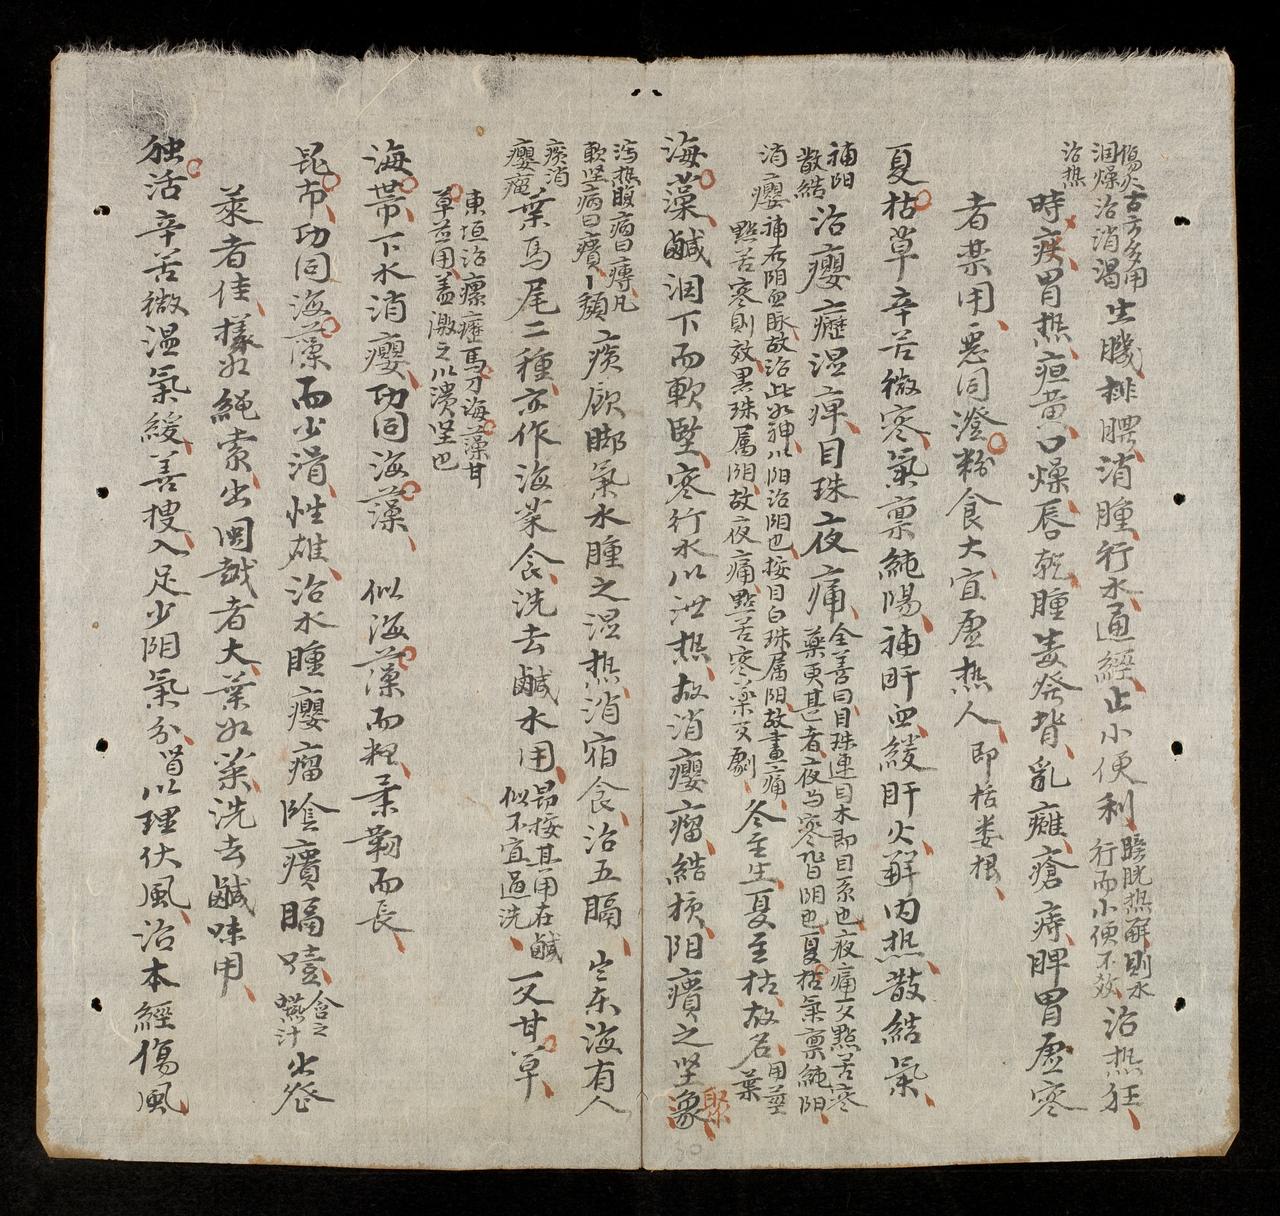 傷災古方多用
潤燥治消渴
治熱
生肌排膿消腫行水通經止小便利
膀胱熱解則水
行而小便不数
治熱狂
時疾胃熱疸黃口燥唇乾腫毒發背乳癰瘡痔脾胃虛寒
者禁用惡同澄粉食大宜虛熱人即栝蒌根
夏枯草辛苦微寒氣稟純陽補肝血緩肝火解内热散結氣
補陽
散結
消癭
治癭癧湿痺目珠夜痛
全善曰目珠連目本即目系也夜痛及點苦寒
藥更甚者夜与寒皆阴也夏枯氣稟純阳
補厥阴血脉故治此如神以阳治阴也按目白珠属阳故晝痛
點苦寒則效黑珠属阴故夜痛點苦寒藥反劇
冬至生夏至枯故名
用莖
葉
海藻鹹潤下而軟堅寒行水以泄热故消癭瘤結核阴㿉之坚聚
瀉热腹病曰㿗凡
軟坚病曰㿉丨頹
痰飲脚氣水腫之湿热消宿食治五膈
出东海有大
痰消
癭瘤
葉馬尾二種亦作海菜食洗去鹹水用
昂按其用在鹹
似不宜過洗
反甘草
東垣治瘰癧馬刀海藻甘
草並用盖激之以潰堅也
海帶下水消癭功同海藻 似海藻而粗柔靭而長
昆布功同海藻而少滑性雄治水腫癭瘤陰㿉膈噎
含之
嚥汁
出登
萊者佳㨾如繩索出閩越者大葉如菜洗去鹹味用
独活辛苦微温氣緩善搜入足少阴氣分以理伏風治本經傷風